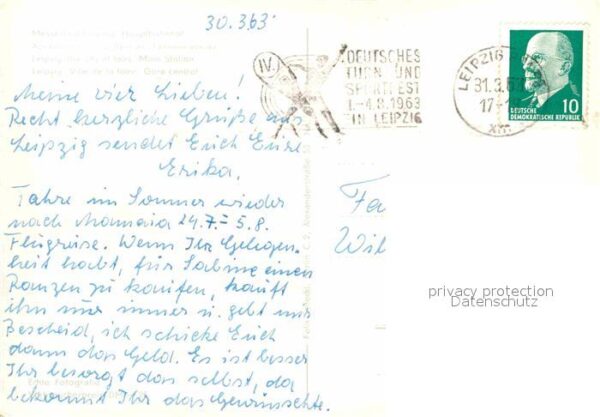 30.3.63
Messestadt Leipzig Hauptbahnhof
Leipzig, the city of fairs, Main Station
Leipzig, Ville de la foire, Gare central
IV.
DEUTSCHES
TURN UND
SPORTFEST
1.-4.8.1963
IN LEIPZIG
LEIPZIG
31.3.63
17-
DEUTSCHE
DEMOKRATISCHE REPUBLIK
10
Meine vier Lieben!
Recht herzliche Grüße aus
Leipzig sendet Euch Eure
Erika.
Fahre im Sommer wieder
nach Mamaia 24.7.-5.8.
Flugreise. Wenn Ihr Gelegen-
heit habt, für Sabine einen
Ranzen zu kaufen, kauft
ihn nur immer u. gebt mir
Bescheid, ich schicke Euch
dann das Geld. Es ist besser
Ihr besorgt das selbst, da
bekommt Ihr das Gewünschte.
Fa
Wil
privacy protection
Datenschutz
Echte Fotografie